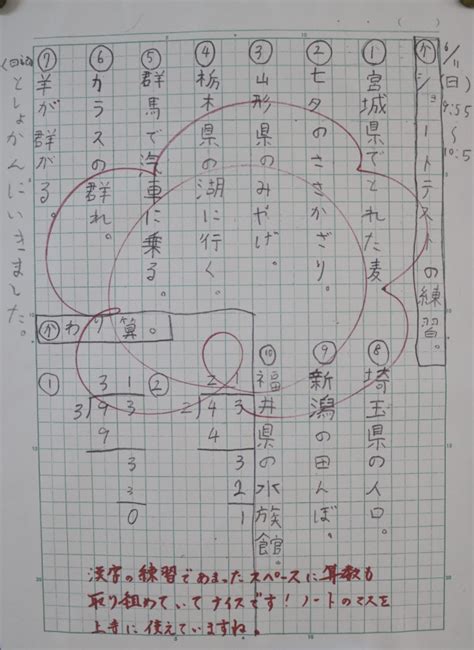 6/11(日)
9:55
〜
10:5
㋕ショートテストの練習。
①宮城県でとれた麦
②七夕のささかざり。
③山形県のみやげ。
④栃木県の湖に行く。
⑤群馬で汽車に乗る。
⑥カラスの群れ。
⑦羊が群がる。
としょかんにいきました。
⑧埼玉県の人口。
⑨新潟の田んぼ。
⑩福井県の水族館。
わり算。
① 31
3)93
9
3
3
0
② 21
2)43
4
3
2
1
漢字の練習であまったスペースに算数も
取り組めていてナイスです!ノートのマスを
上手に使えていますね。